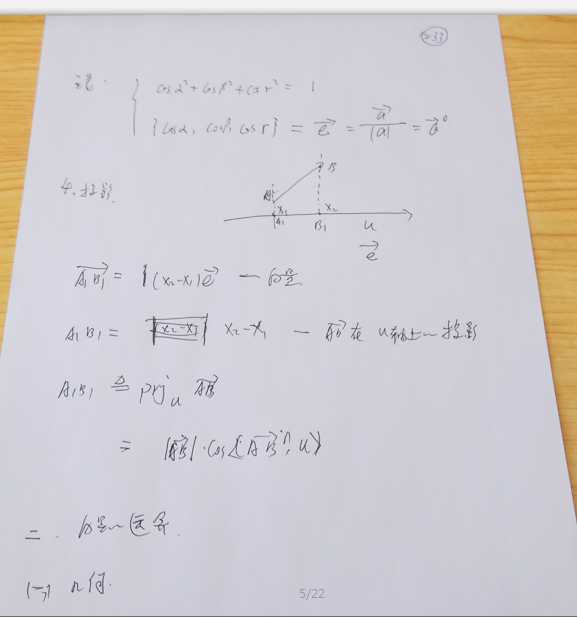 233
记: { cos α² + cos β² + cos γ² = 1
{cos α, cos β, cos γ} = e⃗ = a⃗/|a⃗| = a⃗⁰
4. 投影
A B
x₁ x₂
A₁ B₁ u
e⃗
A₁B₁⃗ = (x₂-x₁)e⃗ — 向量
A₁B₁ = x₂-x₁ — AB⃗ 在 u轴上~投影
A₁B₁ ≜ prj u AB⃗
= |AB⃗|·cos(AB⃗^, u)
二. 向量~运算.
(一) 几何.
5/22